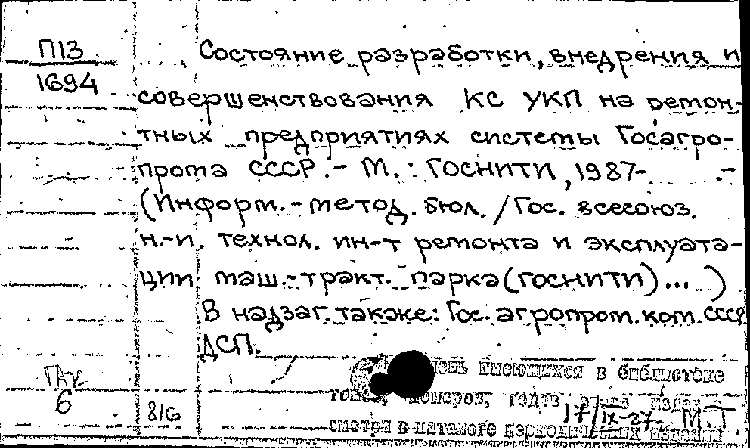 П13
1694
Состояние разработки, внедрения и
совершенствования КС УКП на ремон-
тных предприятиях системы Госагро-
прома СССР. - М.: ГОСНИТИ, 1987-
(Информ.-метод. бюл. / Гос. всесоюз.
н.-и. технол. ин-т ремонта и эксплуата-
ции маш.-тракт. парка (ГОСНИТИ)... )
В надзаг. также: Гос. агропром. ком. СССР
ДСП.
имеющихся в библиотеке
номеров, годов
6
816
17/IX-87
смотри в каталоге